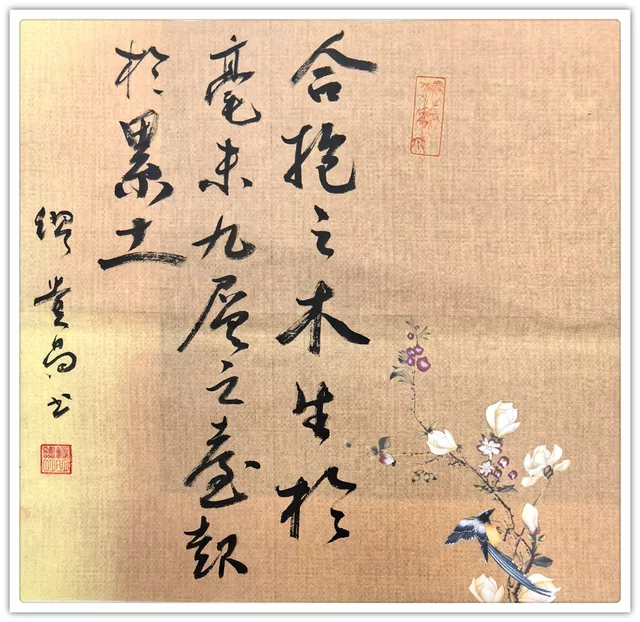 合抱之木生於
毫末九層之臺起
於累土
繆貴昌书